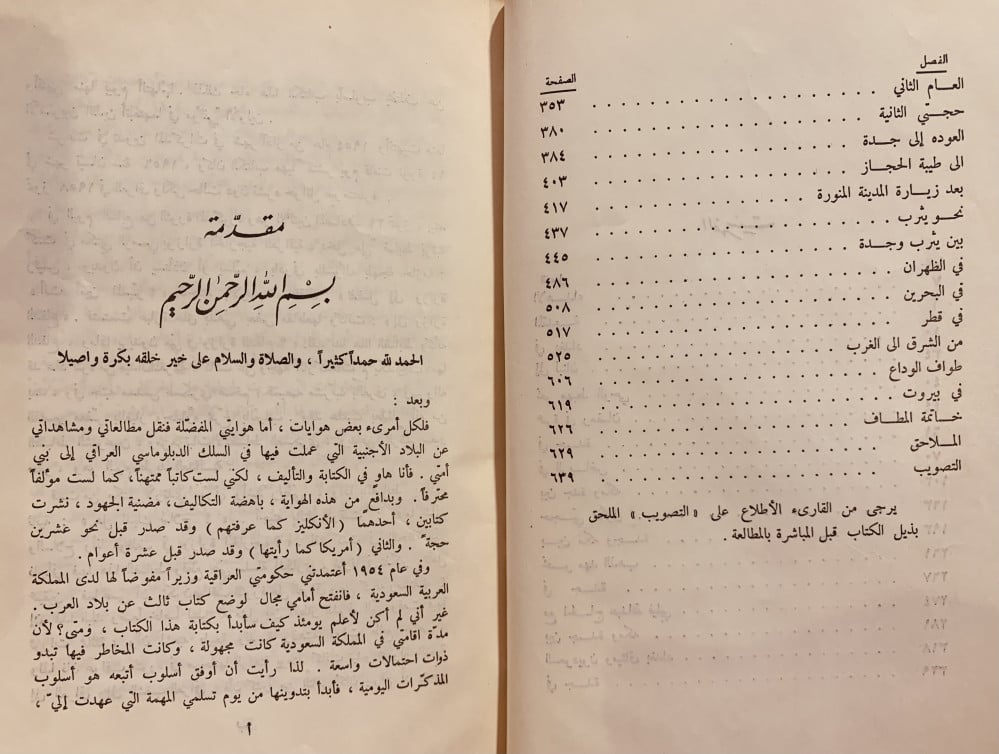 الفصل
الصفحة
العـــام الثاني ٣٥٣
حجـــتي الثانية ٣٨٠
العوده إلى جـــدة ٣٨٤
الى طيبة الحجـاز ٤٠٣
بعد زيـــارة المدينة المنورة ٤١٧
نحـــو يثرب ٤٣٧
بين يثرب وجـــدة ٤٤٥
في الظهران ٤٨٦
في البحرين ٥٠٨
في قطر ٥١٧
من الشرق الى الغرب ٥٢٥
طواف الوداع ٦٠٦
في بيروت ٦١٩
خـــاتمة المطـــاف ٦٢٦
المـــلاحق ٦٢٩
التصويب ٦٣٩
يرجى من القارىء الأطلاع على «التصويب» الملحق
بذيل الكتاب قبل المباشرة بالمطالعة .
مقدّمة
بسم الله الرحمن الرحيم
الحمد لله حمداً كثيراً ، والصلاة والسلام على خير خلقه بكرة واصيلا
وبعد :
فلكل أمرىء بعض هوايات ، أما هوايتي المفضّلة فنقل مطالعاتي ومشاهداتي
عن البلاد الأجنبية التي عملت فيها في السلك الدبلوماسي العراقي إلى بني
أمتي . فأنا هاو في الكتابة والتأليف ، لكني لست كاتباً ممتهناً، كما لست مؤلفاً
محترفاً . وبدافع من هذه الهواية ، باهضة التكاليف، مضنية الجهود ، نشرت
كتابين ، أحدهما (الأنكليز كما عرفتهم) وقد صدر قبل نحو عشرين
حجة . والثاني (أمريكا كما رأيتها) وقد صدر قبل عشرة أعوام .
وفي عام ١٩٥٤ أعتمدتني حكومتي العراقية وزيراً مفوضاً لها لدى المملكة
العربية السعودية ، فانفتح أمامي مجال لوضع كتاب ثالث عن بلاد العرب .
غير أني لم أكن لأعلم يومئذ كيف سأبدأ بكتابة هذا الكتاب ، ومتى؟ لأن
مدّة اقامتي في المملكة السعودية كانت مجهولة ، وكانت المخاطر فيها تبدو
ذوات احتمالات واسعة . لذا رأيت أن أوفق أسلوب أتبعه هو أسلوب
المذكّرات اليومية ، فأبدأ بتدوينها من يوم تسلمي المهمة التي عهدت إليّ ،
أ